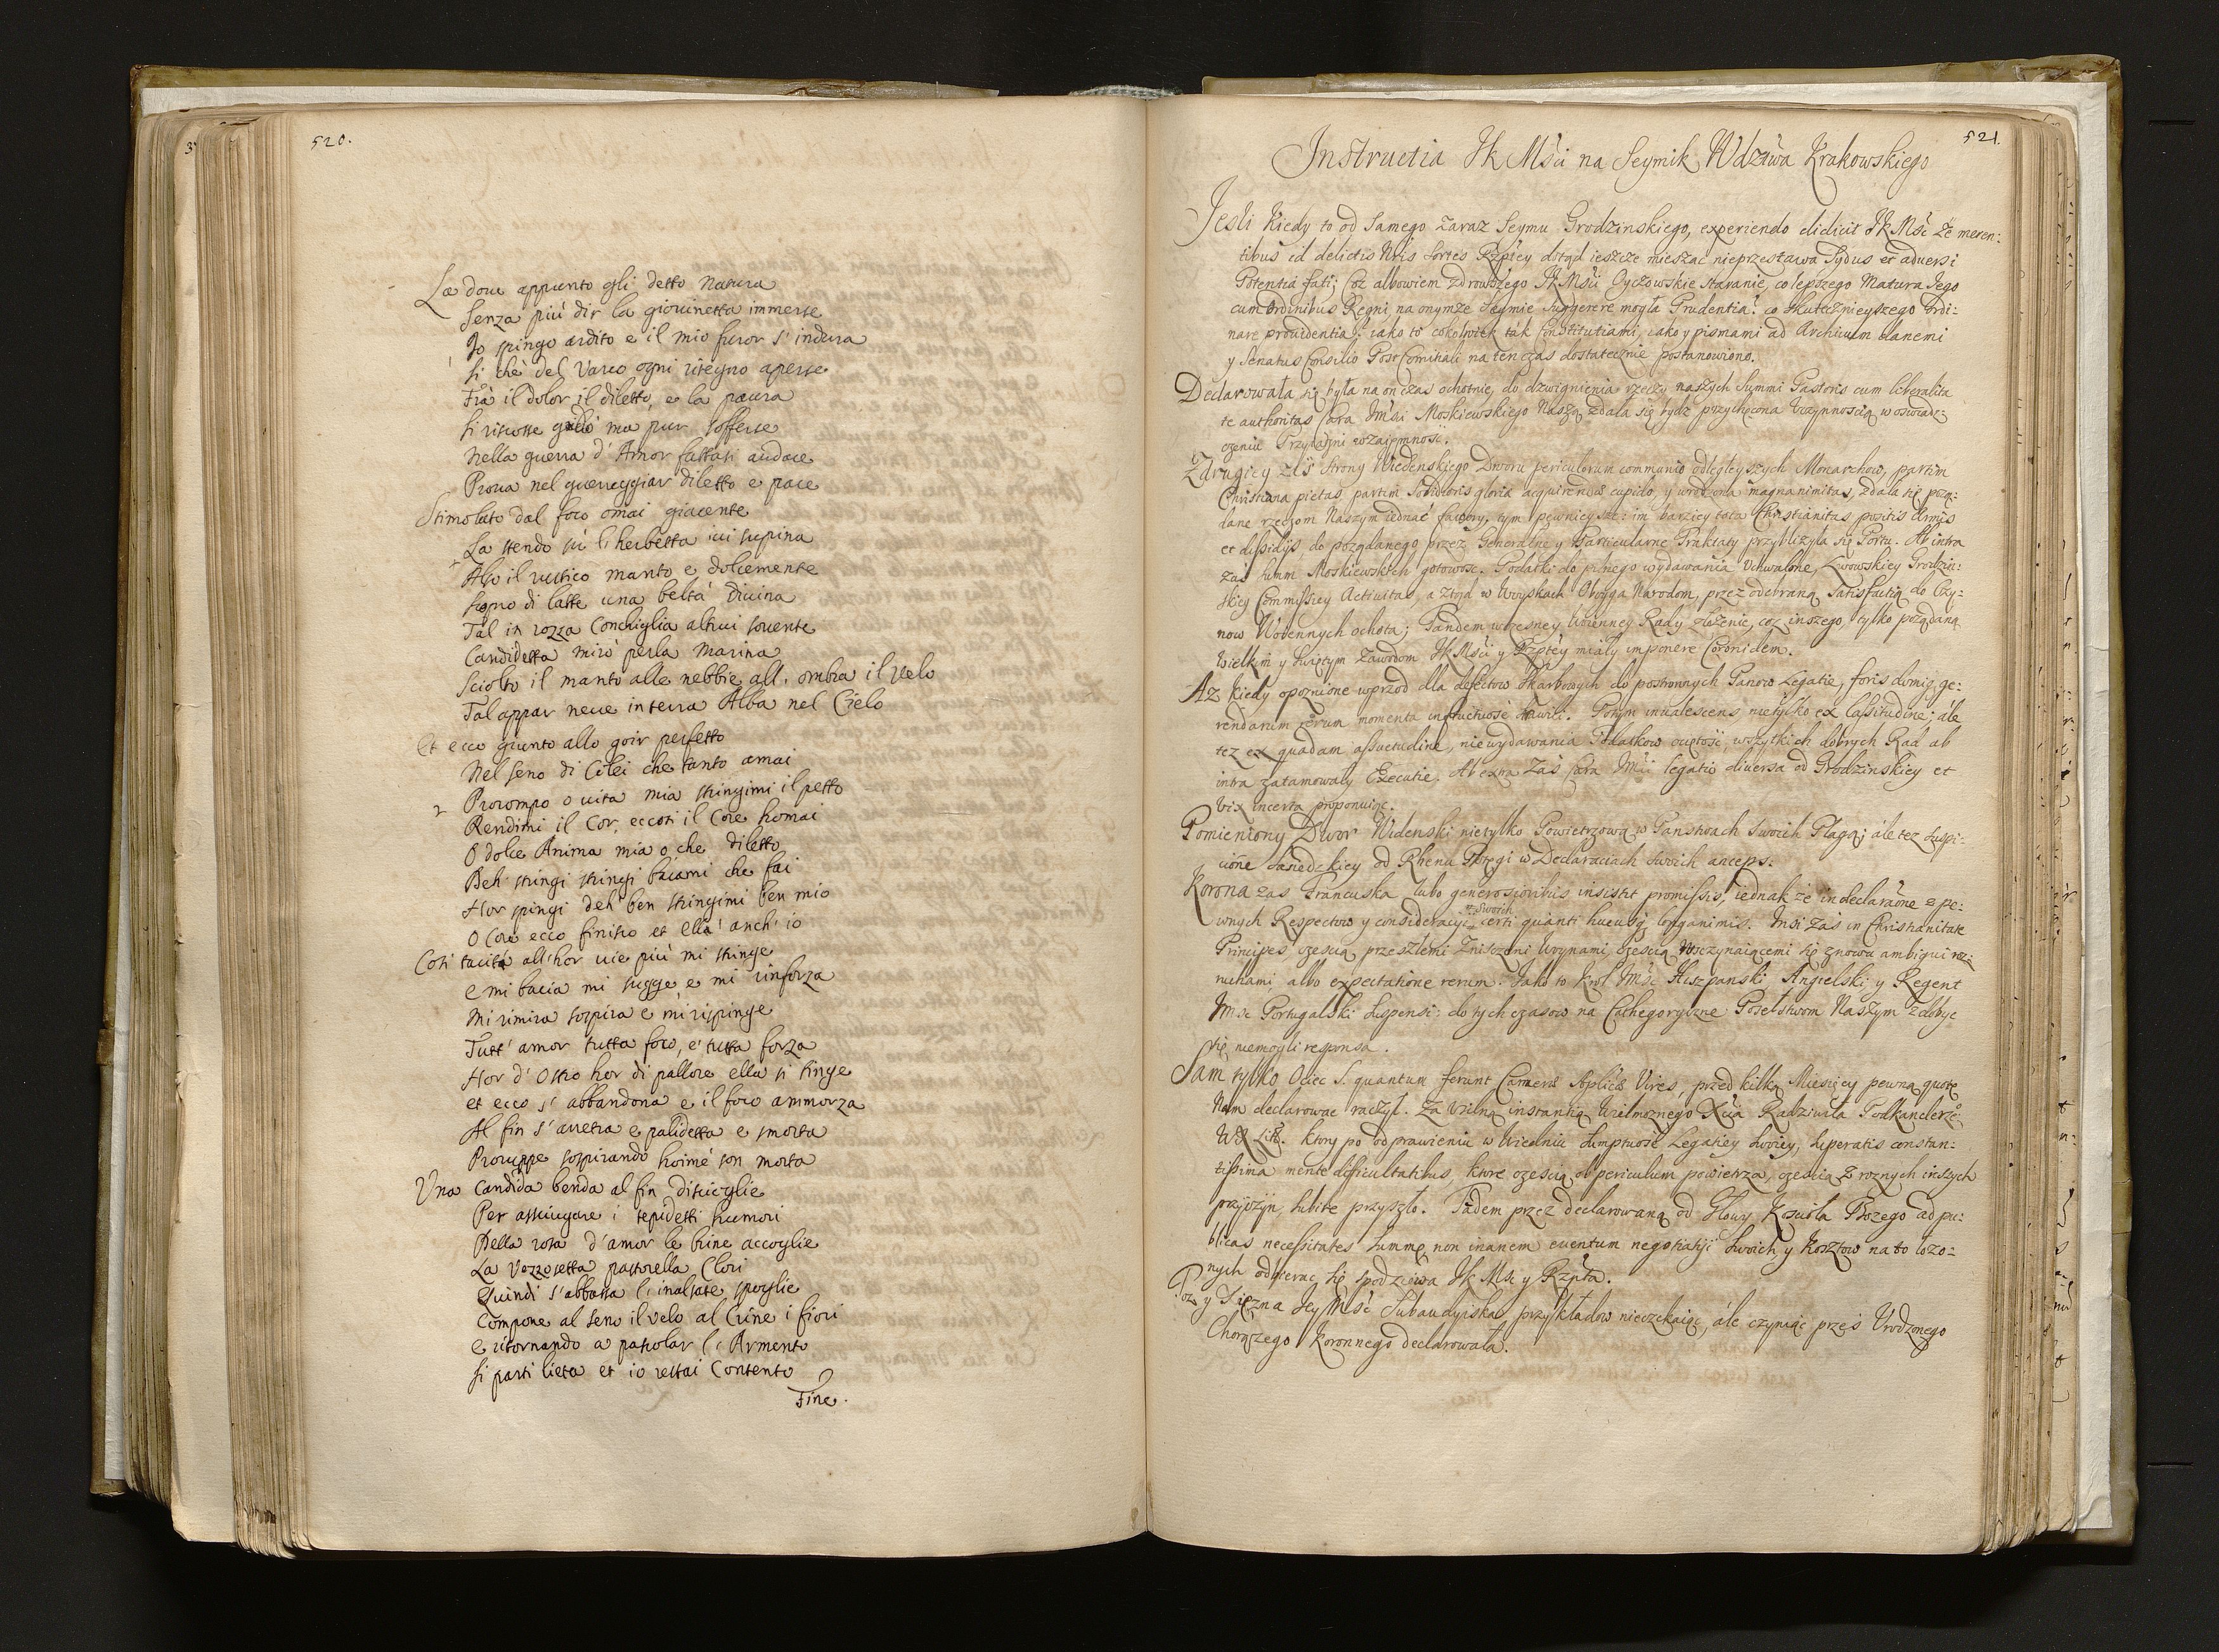 520.
La doue appunto gli detto natura
Senza più dir la giouinetta immerse
Io spingo ardito e il mio furor s' indura
si chè del Varco ogni ritegno aperse
Frà il dolor il diletto, e la paura
si riscosse gridò ma pur sofferse
Nella guerra d' Amor fattasi audace
Proua nel guerreggiar diletto e pace
Stimolato dal foco omai giacente
La stendo sù l' herbetta iui supina
Alzo il rustico manto e dolcemente
scopro di latte una beltà Diuina
Tal in rozza Conchiglia altrui souente
Candidetta mirò perla Marina
Sciolto il manto alle nebbie all' ombra il Velo
Tal appar neue in terra Alba nel Cielo
Et ecco giunto allo goir perfetto
Nel seno di Colei che tanto amai
Prorompo o uita mia stringimi il petto
Rendimi il Cor, eccoti il Core homai
O dolce Anima mia o che diletto
Deh stringi stringi baciami che fai
Hor spingi deh ben stringimi ben mio
O Core ecco finisco et ella anch' io
Così tacita all' hor uie più mi stringe
e mi bacia mi sugge e mi rinforza
Mi rimira sospira e mi rispinge
Tutt' amor tutta foco, e tutta forza
Hor d' Ostro hor di pallore ella si tinge
et ecco s' abbandona e il foco ammorza
Al fin s' arretra e palidetta e smorta
Proruppe sospirando hoimè son morta
Vna Candida benda al fin discioglie
Per asciugare i tepidetti humori
Della rosa d' amor le brine accoglie
La Vezzosetta pastorella Clori
Quindi s' abbassa l' inalzate spoglie
Compone al seno il Velo al Crine i fiori
e ritornando a pascolar l' Armento
si partì lieta et io restai Contento
Fine.
521.
Instructia Jk Mści na Seymik Wdztwa Krakowskiego
Jesli kiedy to od samego zaraz Seymu Grodzinskiego, experiendo didicit Jk Mść że meren:
tibus id delictis Nris sortes Rzptey dotąd ieszcze mieszać nieprzestawa Sydus et aduersi
Potentia fati; Coż albowiem zdrowszego Jk Mści Oyczowskie staranie, co lepszego Matura Jego
cum Ordinibus Regni na onymże Seymie suggerere mogła Prudentia? co skutecznieyszego Ordi:
nare prouidentia? iako to cokolwiek tak Constitutiami, iako y pismami ad Archiuum danemi
y Senatus Consilio Post Comitiali na ten czas dostatecznie postanowiono.
Declarowała się była na on czas ochotnie do dzwignienia rzeczy naszych Summi Pastoris cum liberalita
te authoritas Cara Jmści Moskiewskiego Naszą zdała się bydz przychęcona Vczynnoscią w oswiad:
czeniu Przyiaźni wzaiemność.
Z drugiey zaś strony Wiedenskiego Dworu periculorum communio odległeyszych Monarchow, partim
Christiana pietas, partim Solidioris gloriæ acquirendæ cupido, y wrodzona magnanimitas, zdała się pożą:
dane rzeczom Naszym iednać fauory, tym pewnieysze: im barziey tota Christianitas positis Armis
et dissidijs, do pożądanego przez Generalne y Particularne Traktaty przybliżyła się Portu. Ab intra
zaś summ Moskiewskich gotowość. Podatki do pilnego wydawania Vchwalone, Lwowskiey Grodzin:
skiey Commissiey Actiuitas, a ztąd w Woyskach Oboyga Narodow, przez odebraną Satisfactią do Czy:
now Woiennych ochota; Tandem wczesney Woienney Rady złożenie, coż inszego, tylko pożądaną
Wielkim y swiętym Zawodom Jk Mści y Rzptey miały imponere Coronidem.
Aż kiedy opoznione wprzod dla defectow Skarbowych do postronnych Panow Legatie, foris domiq ge:
rendarum rerum momenta infructuose strawiły. Potym inualescens nietylko ex lassitudine; ále
też ex quadam assuetudine, niewydawania Podatkow ociętość, wszytkich dobrych Rad ab
intra zatamowały Executie. Ab extra zaś Cara Jmści legatio diuersa od Grodzinskiey et
vix incerta proponuiąc.
Pomieniony Dwor Widenski nietylko Powietrzową w Panstwach swoich Plagą; ále też suspi:
cione sąsiedzkiey od Rhenu Potęgi w Declaraciach swoich anceps.
Korona zaś Francuska lubo generosioribus insistit promissis, iednak że in declaraõne z pe:
wnych Respectow y consideracij swoich certi quanti hucusq longanimis. Insi zaś in Christianitate
Principes częscią przeszłemi Zniszczeni Woynami, częscią Wszczynaiącemi się znowu ambigui rez:
ruchami, albo expectatione rerum. Jako to Krol Jmśc Hiszpanski, Angielski, y Regent
Jmśc Portugalski suspensi: do tych czasow na Cathegoryczne Poselstwom Naszym zdobyc
się niemogli responsa.
Sam tylko Ociec S. quantum ferunt Cameræ Aplicæ Vires, przed kilką Miesięcy pewną quotę
Nam declarowac raczył. Za Vsilną instantią Wielmożnego Xcia Radziwiła Podkanclerzo
WX Litt. ktory po odprawieniu w Wiedniu sumptuose Legatiey swoiey, superatis constan:
tissima mente difficultatibus, ktore częscią ob periculum powietrza, częscią z roznych inszych
przyczyn, subire przyszło. Tãdem przez declarowaną od Głowy Koscioła Bożego ad pu:
blicas necessitates Summę, non inanem euentum negotiatiji swoich, y Kosztow na to łożo:
nych odbierac się spodziewa Jk Msc y Rzpta.
Toż y Xiężna Jey Mość Sabaudyiska przykładow nieczekaiąc, ále czyniąc przez Vrodzonego
Chorążego Koronnego declarowała.